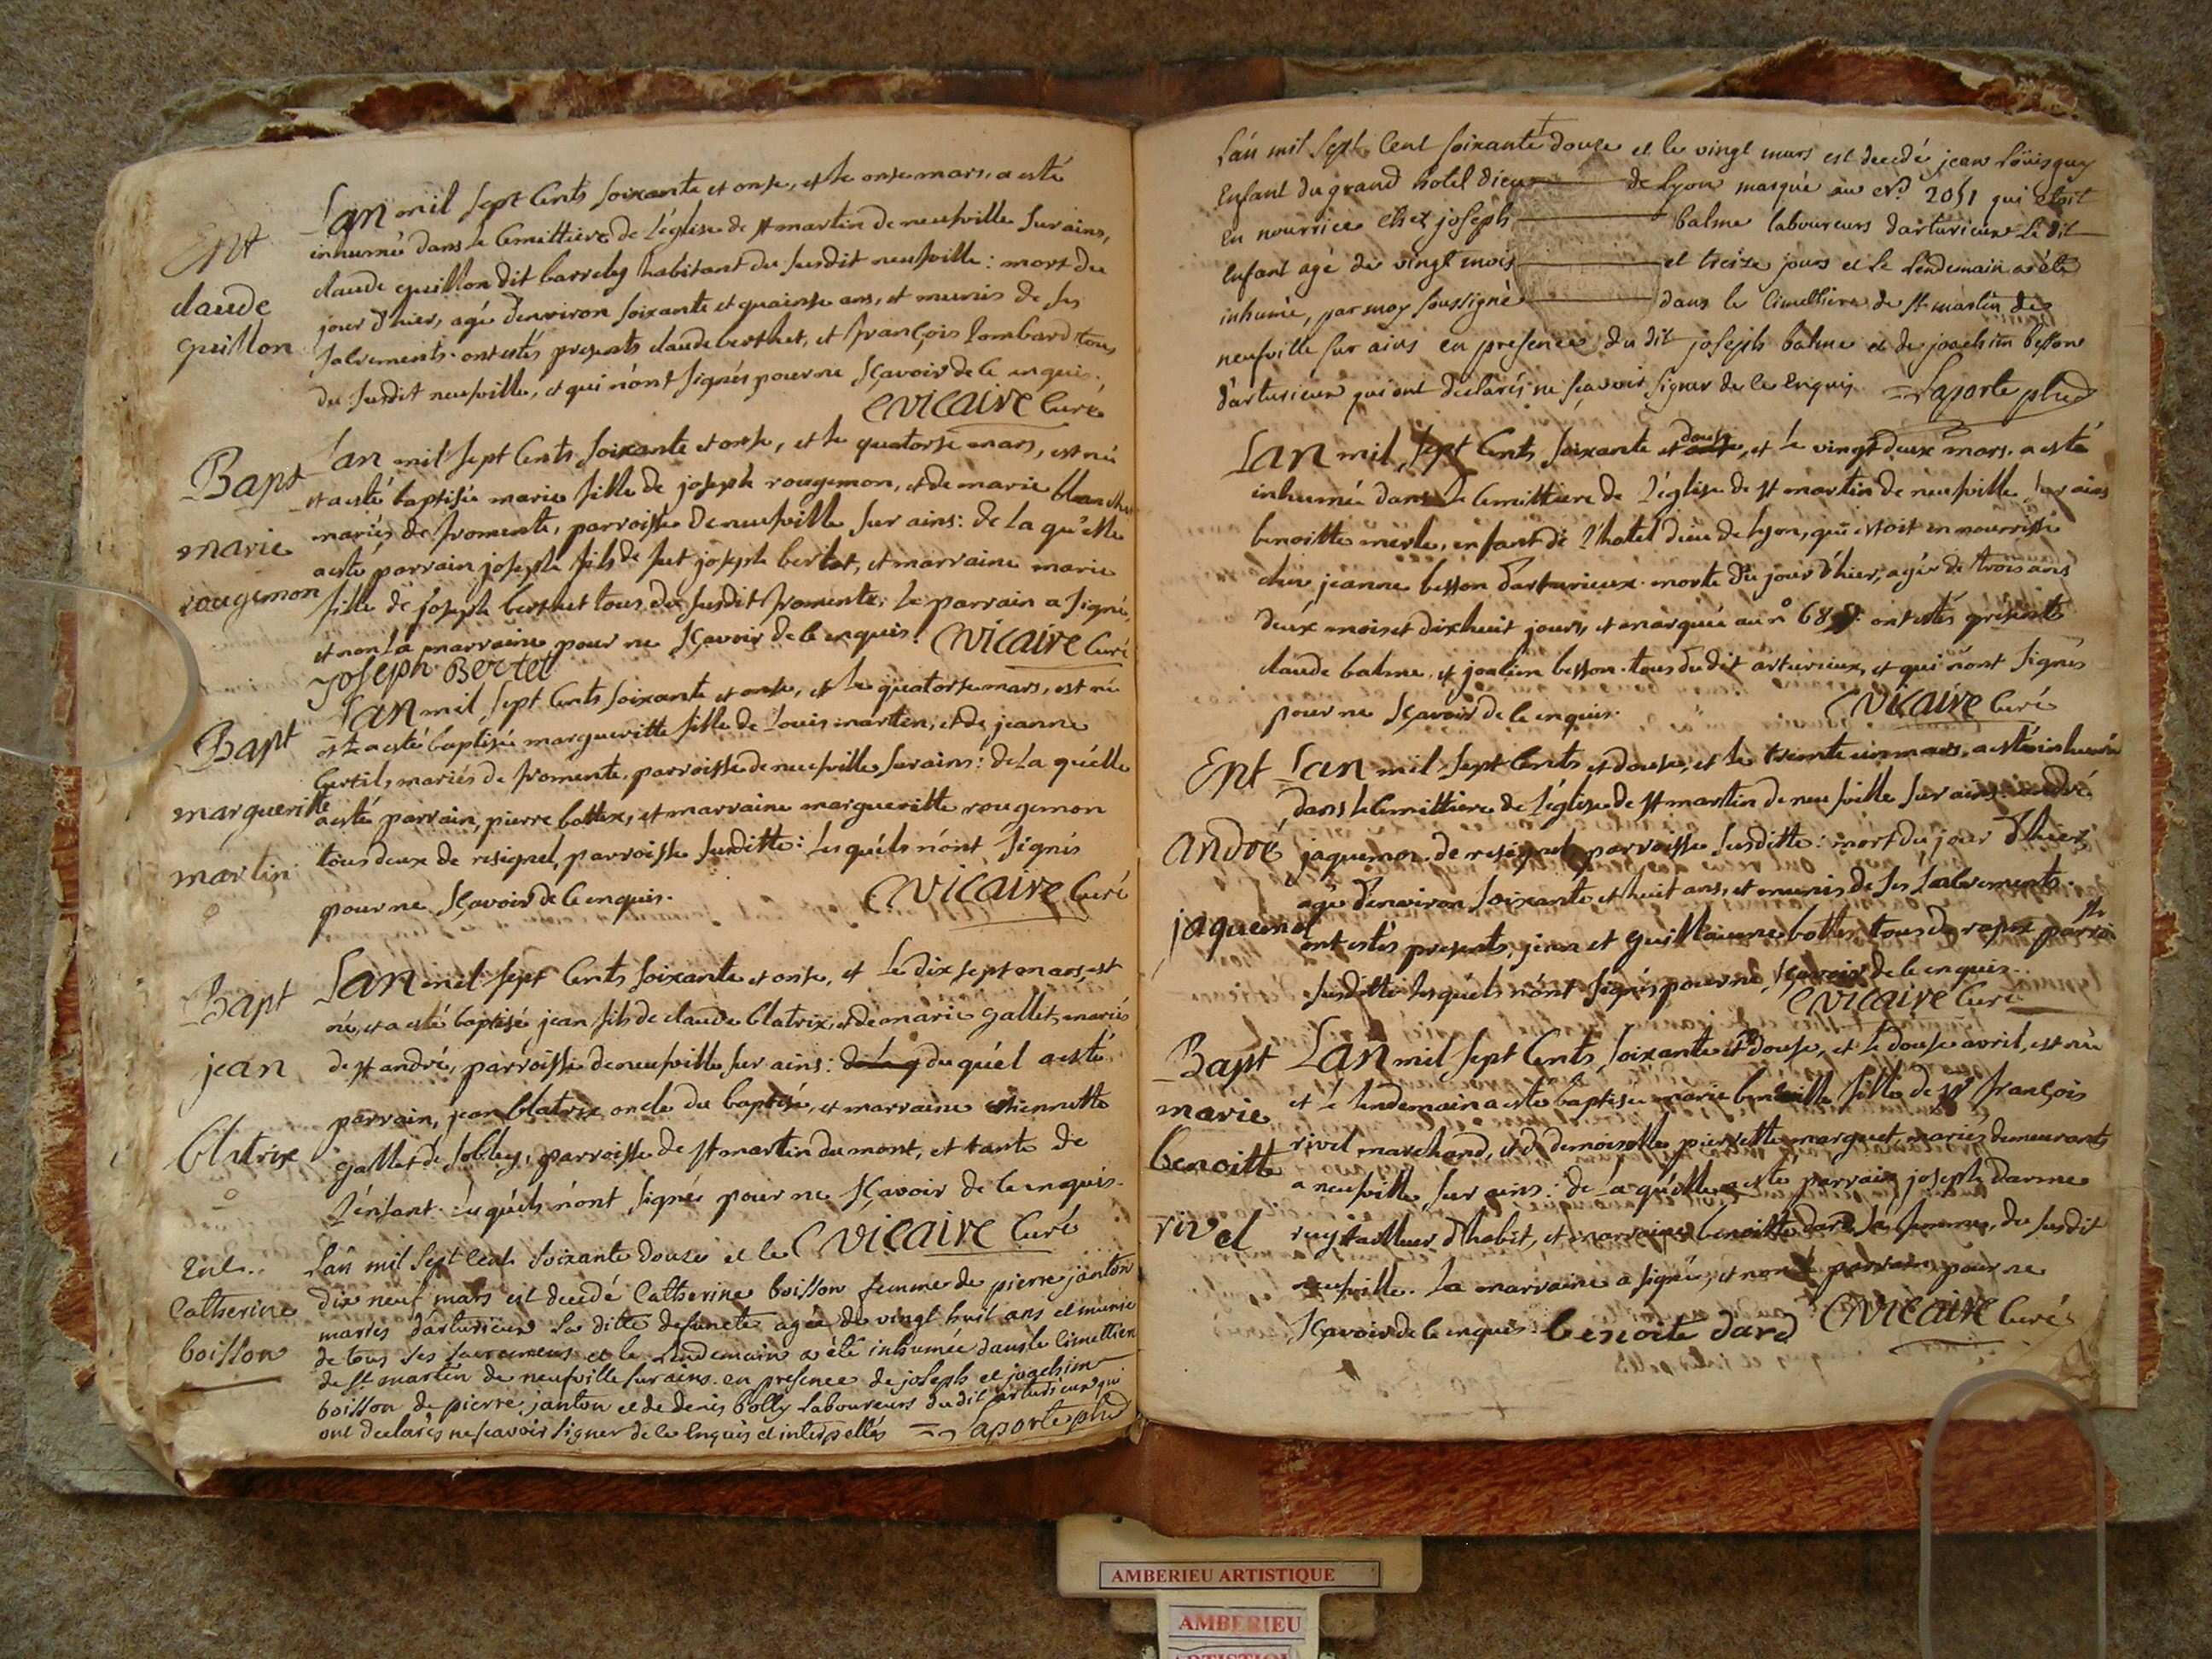 Ent
claude
guillon
Lan mil sept Cents soixante et onse, et le onse mars, a esté
inhumé dans le Cemittiere de l'église de st martin de neufville sur ains,
claude guillon dit barreley habitant du susdit neufville: mort du
jour d'hier, agé d'environ soixante et quainse ans, et munis de ses
sacrements. ont estés presents claude berthet, et françois lombard tous
du susdit neufville, et qui n'ont signés pour ne sçavoir de ce enquis.
Vicaire Curé
Bapt
marie
rougemon
Lan mil sept Cents soixante et onse, et le quatorse mars, est née
et a esté baptisée marie fille de joseph rougemon, et de marie blanche
mariés de fromente, parroisse de neufville sur ains: de la qu'elle
a esté parrain joseph fils de fet joseph bertet, et marraine marie
fille de joseph berthet tous du susdit fromente: le parrain a signé,
et non la marraine pour ne sçavoir de ce enquis. Vicaire Curé
Joseph Bertet
Bapt
margueritte
martin
Lan mil sept Cents soixante et onse, et le quatorse mars, est née
et a esté baptisée margueritte fille de louis martin, et de jeanne
Curtil, mariés de fromente, parroisse de neufville sur ains: de la quélle
a esté parrain, pierre bottex, et marraine margueritte rougemon
tous deux de resignel, parroisse susditte: lesquéls n'ont signés
pour ne sçavoir de ce enquis. Vicaire Curé
Bapt
jean
Clatrix
Lan mil sept Cents soixante et onse, et le dix sept mars, est
né, et a esté baptisé jean fils de claude Clatrix, et de marie gallet, mariés
de st andré, parroisse de neufville sur ains: duquél a esté
parrain, jean Clatrix oncle du baptisé, et marraine etiennette
gallet de sobley, parroisse de st martin du mont, et tante de
l'enfant. lesquéls n'ont signés pour ne sçavoir de ce enquis.
Vicaire Curé
Ent..
Catherine
boisson
L'an mil sept cent soixante douze et le
dix neuf mars est decedé Catherine boisson femme de pierre janton
mariés d'arturieux la ditte defuncte agée de vingt huit ans et munie
de tous ses sacremens et le lendemain a été inhumée dans le Cimettiere
de st. martin de neufville sur ains. en presence de joseph et joachim
boisson de pierre janton et de denis bolly laboureurs du dit arturieux qui
ont declarés ne scavoir signer de ce Enquis et interpellés = Laporte
L'an mil sept Cent soixante douze et le vingt mars est decedé jean Loüis guy
Enfant du grand hotel dieu de Lyon marqué au no. 2051 qui étoit
en nourrice chez joseph balme laboureurs d'arturieux le dit
enfant agé de vingt mois et treize jours et le lendemain a été
inhumé, par moy soussigné dans le Cimettiere de st martin de
neufville sur ains en presence du dit joseph balme et de joachim besson
d'arturieux qui ont declarés ne sçavoir signer de ce Enquis = Laporte
Lan mil sept Cents soixante et douse, et le vingt deux mars. a esté
inhumée dans le Cemittiere de l'église de st martin de neufville sur ains
benoitte merle, enfant de l'hotel dieu de lyon, qui estoit en nourrisse
chés jeanne besson d'arturieux. morte du jour d'hier, agée de trois ans
deux mois et dixhuit jours, et marquée au no ont estés présents
claude balme, et joachim besson. tous du dit arturieux, et qui n'ont signés
pour ne sçavoir de ce enquis. Vicaire Curé
Ent
andré
jaquemot
Lan mil sept Cents et douse, et le trente un mars. a esté inhumé
dans le Cemittiere de l'église de st martin de neufville sur ains. andré
jaquemot. de resignel parroisse susditte: mort du jour d'hier,
agé d'environ soixante et huit ans, et munis de ses sacrements.
ont estés presents, jean et guillaume bottex tous de
susditte lesquéls n'ont signés pour ne sçavoir de ce enquis.
Vicaire Curé
Bapt
marie
benoitte
rivel
Lan mil sept Cents soixante et douse, et le douse avril, est née
et le lendemain a esté baptisée marie benoitte fille de sr françois
rivel marchand, et de demoiselle pierrette marguet, mariés demeurants
a neufville sur ains: de la quélle a esté parrain joseph darme
ruy tailleur d'habit, et marraine benoitte dard sa femme, du susdit
neufville. la marraine a signé, et non le parrain pour ne
sçavoir de ce enquis. benoite dard Vicaire Curé
AMBERIEU ARTISTIQUE
AMBERIEU
ARTISTIQUE